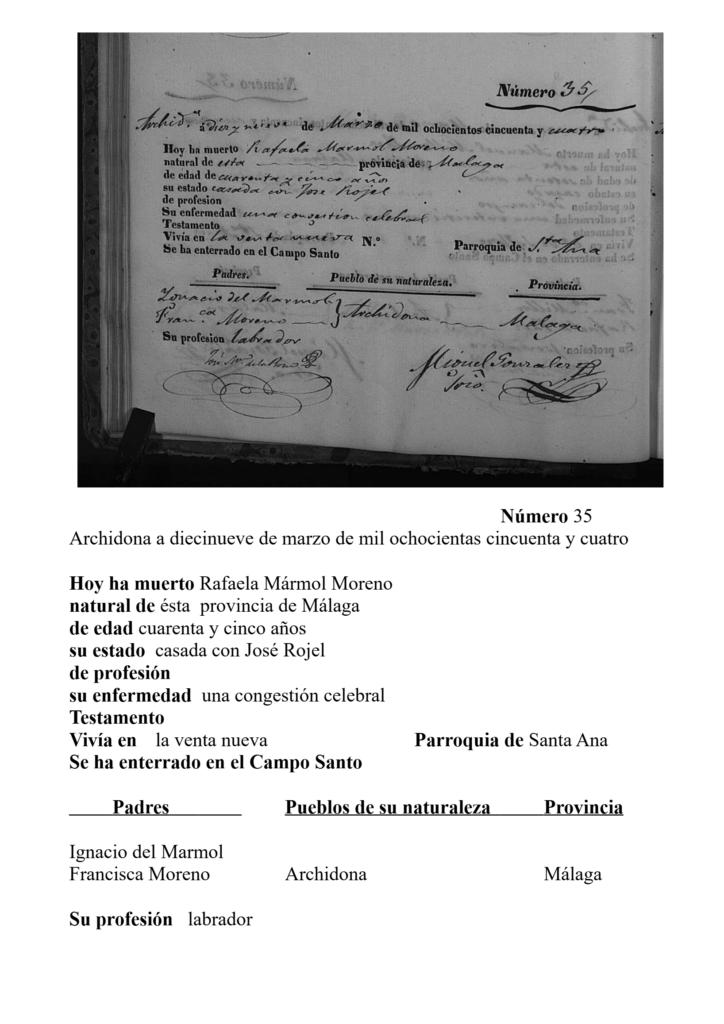 Número 35
Archid.n a diez y nueve de Marzo de mil ochocientos cincuenta y cuatro
Hoy ha muerto Rafaela Marmol Moreno
natural de esta provincia de Malaga
de edad de cuarenta y cinco años
su estado casada con Jose Rojel
de profesion
Su enfermedad una congestion celebral
Testamento
Vivía en la venta nueva N.º Parroquia de S.ta Ana
Se ha enterrado en el Campo Santo
Padres. Pueblo de su naturaleza. Provincia.
Ygnacio del Marmol
Fran.ca Moreno Archidona Malaga
Su profesion labrador
Miguel Gonzalez
Número 35
Archidona a diecinueve de marzo de mil ochocientas cincuenta y cuatro
Hoy ha muerto Rafaela Mármol Moreno
natural de ésta provincia de Málaga
de edad cuarenta y cinco años
su estado casada con José Rojel
de profesión
su enfermedad una congestión celebral
Testamento
Vivía en la venta nueva Parroquia de Santa Ana
Se ha enterrado en el Campo Santo
Padres Pueblos de su naturaleza Provincia
Ignacio del Marmol
Francisca Moreno Archidona Málaga
Su profesión labrador